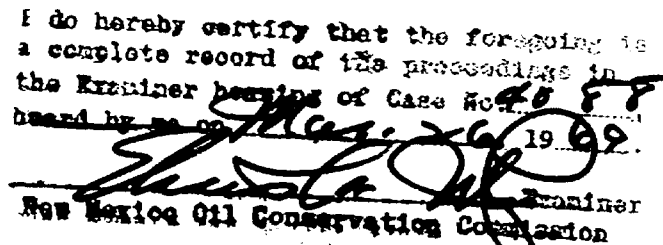 I do hereby certify that the foregoing is
a complete record of the proceedings in
the Examiner hearing of Case No. 4088
heard by me on Mar. 26, 1969.
Examiner
New Mexico Oil Conservation Commission